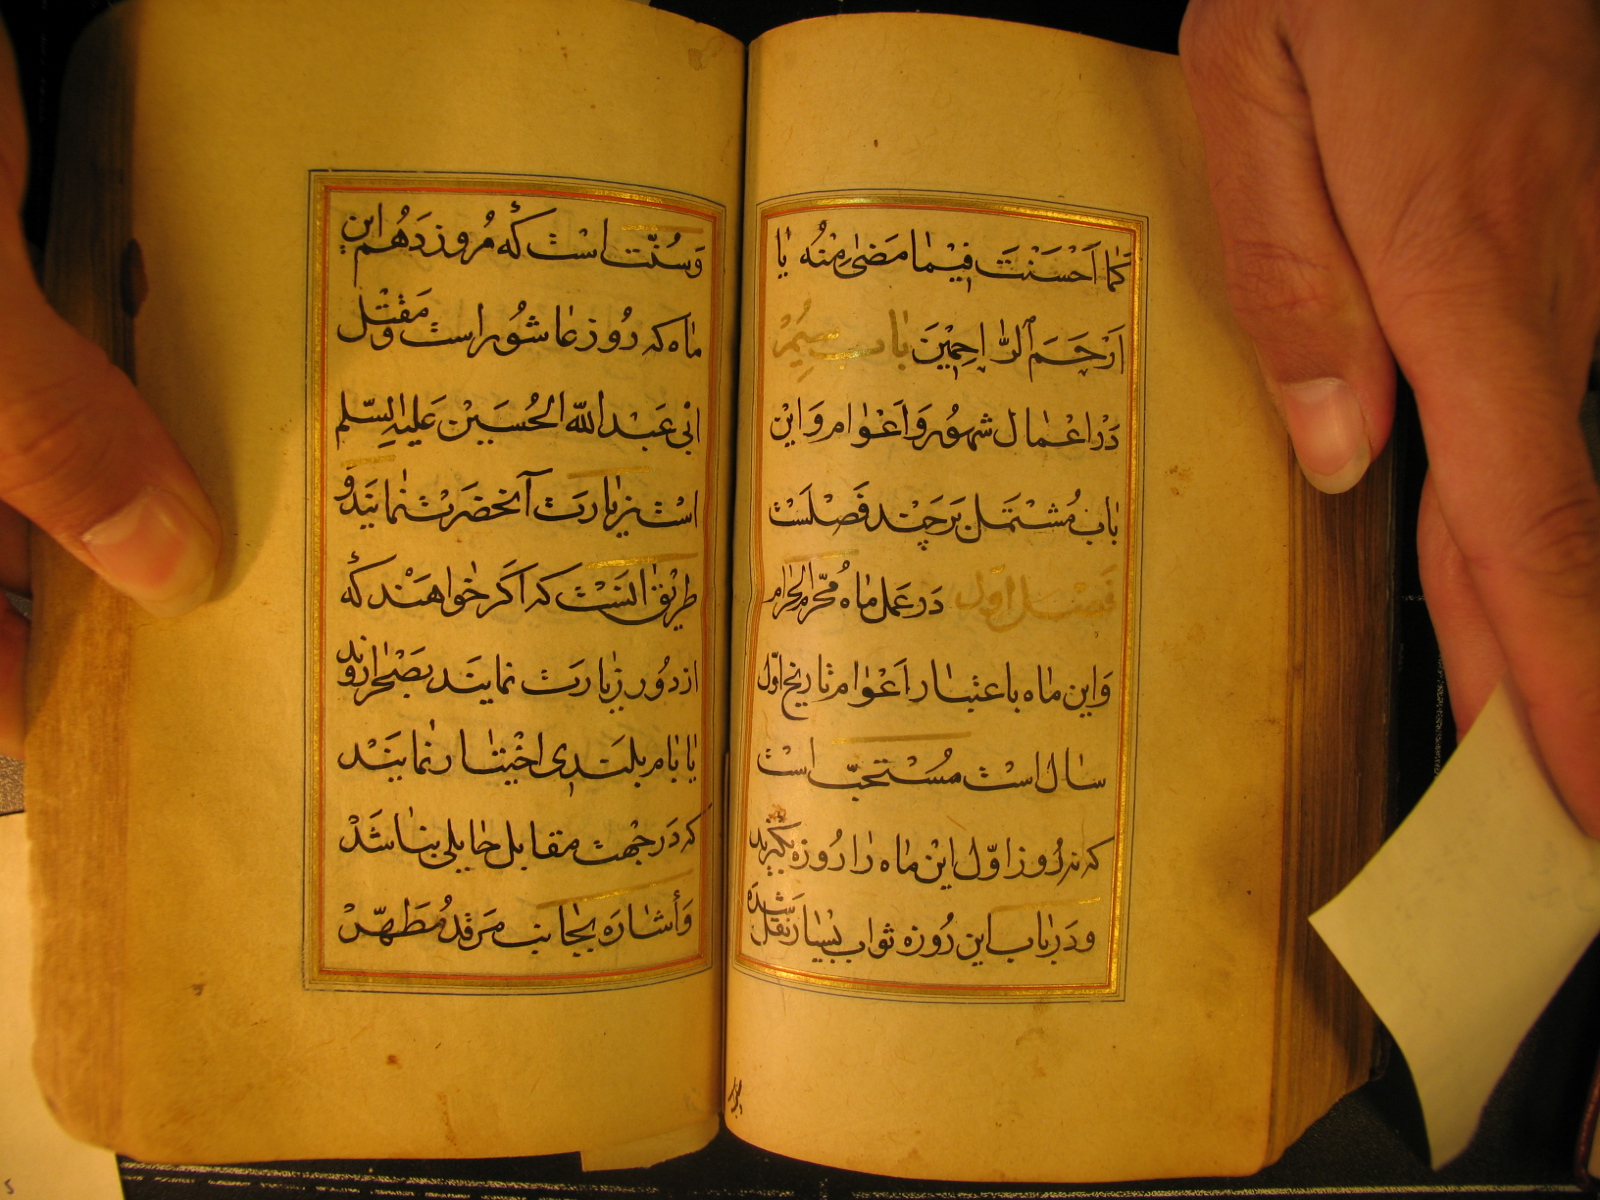 كَما اَحْسَنْتَ فيمٰا مَضىٰ مِنْهُ يٰا
اَرْحَمَ الرّٰاحِمِيْنَ بٰاب سِيُمْ
دَرْ اعْمٰال شهوُر وَ اَعْوٰام وَ ايْن
بٰاب مُشْتَمَل بَر چَنْد فَصْلَسْت
فَصْل اَوّل دَر عَمل مٰاهُ مُحَرّم الحَرٰام
وَ اين مٰاه باعتبٰار اَعْوٰام تٰاريخ اوّل
سٰال اسْت مُسْتَحبّ است
كه دَر رُوز اوّل ايْن مٰاه رٰا رُوزه بگيرند
و دَر بٰاب اين رُوزه ثواب بسْيٰار نَقْل شده
وَ سُنّت اسْت كه دَر روز دَهُم اين
مٰاه كه رُوز عٰاشُورا ست وَ مَقْتل
ابي عَبْد اللّه الحُسَيْن عَليه السّلم
است زيٰارَت آنحَضرَتْ نمٰايَند وَ
طَريْق اينَسْت كه اَگر خوٰاهَنْد كه
از دُور زيٰارَت نمايَند بصَحْرٰا روند
يٰا بٰام بلَندى اخْتيٰار نمٰايَنْد
كه دَر جهْت مقابل حٰايلى نبٰاشَدْ
وَ اشٰارَه بجٰانب مَرقد مُطَهّرْ